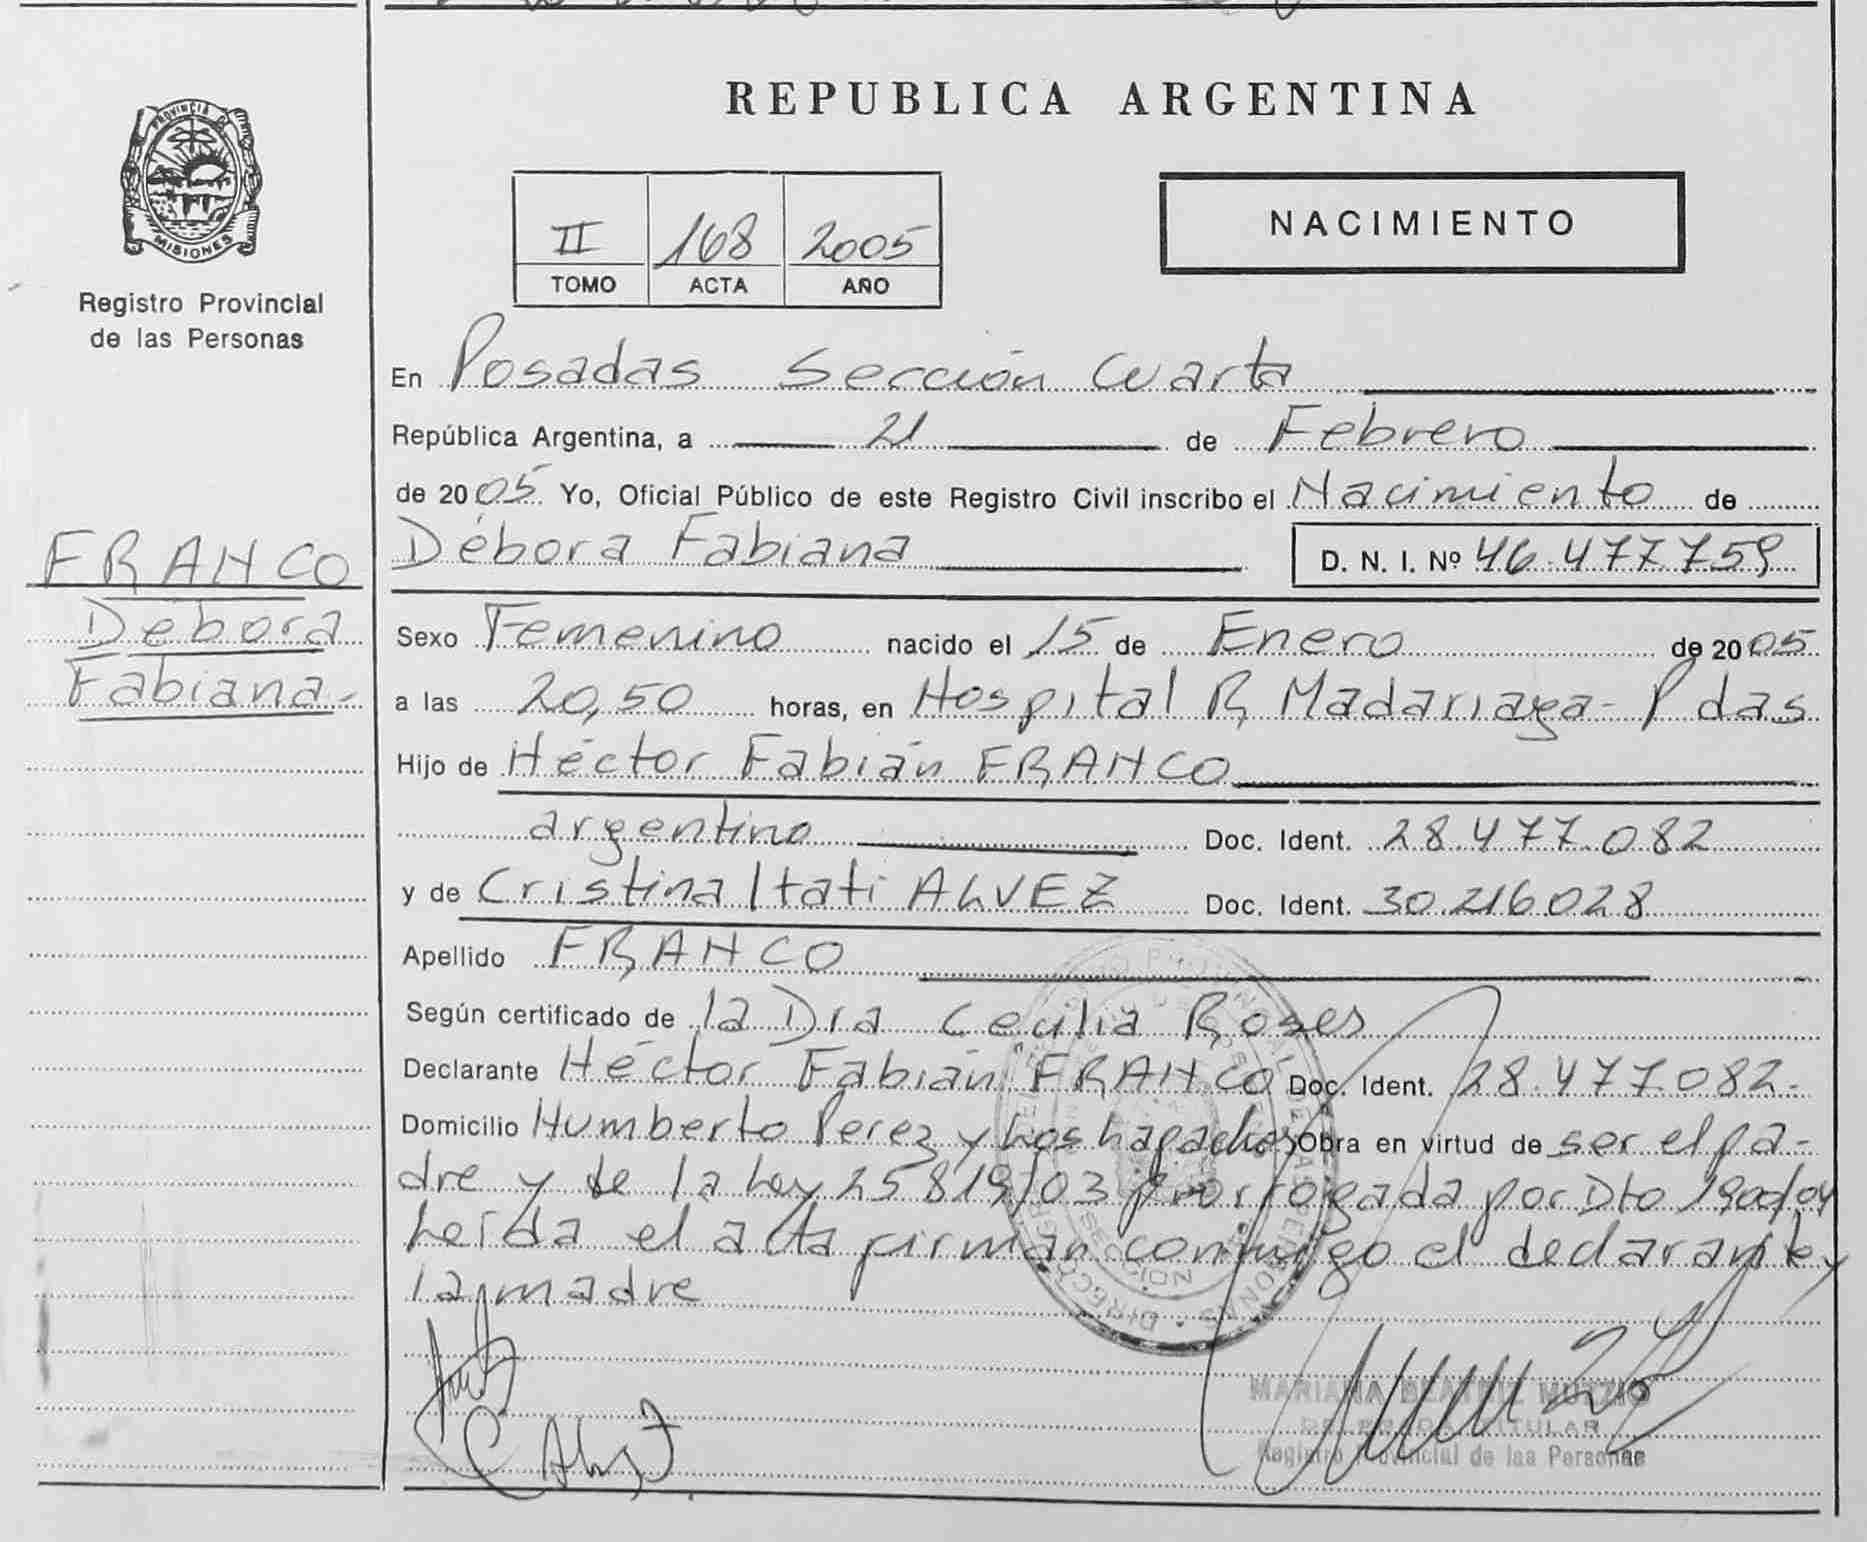 REPUBLICA ARGENTINA
PROVINCIA DE
MISIONES
Registro Provincial
de las Personas
II 168 2005
TOMO ACTA AÑO
NACIMIENTO
En Posadas Sección Cuarta
República Argentina, a 21 de Febrero
de 2005 Yo, Oficial Público de este Registro Civil inscribo el Nacimiento de
FRANCO
Débora
Fabiana-
Débora Fabiana D. N. I. Nº 46.477.759
Sexo Femenino nacido el 15 de Enero de 2005
a las 20,50 horas, en Hospital R. Madariaga - Pdas
Hijo de Héctor Fabián FRANCO
argentino Doc. Ident. 28.477.082
y de Cristina Itati ALVEZ Doc. Ident. 30.216.028
Apellido FRANCO
Según certificado de la Dra Cecilia Roses
Declarante Héctor Fabián FRANCO Doc. Ident. 28.477.082-
Domicilio Humberto Perez y Los Lapachos Obra en virtud de ser el pa-
dre y de la Ley 25819/03 prorrogada por Dto 1900/04
Leída el acta firman conmigo el declarante y
la madre
MARIANA BEATRIZ
DELEGADA TITULAR
Registro Provincial de las Personas